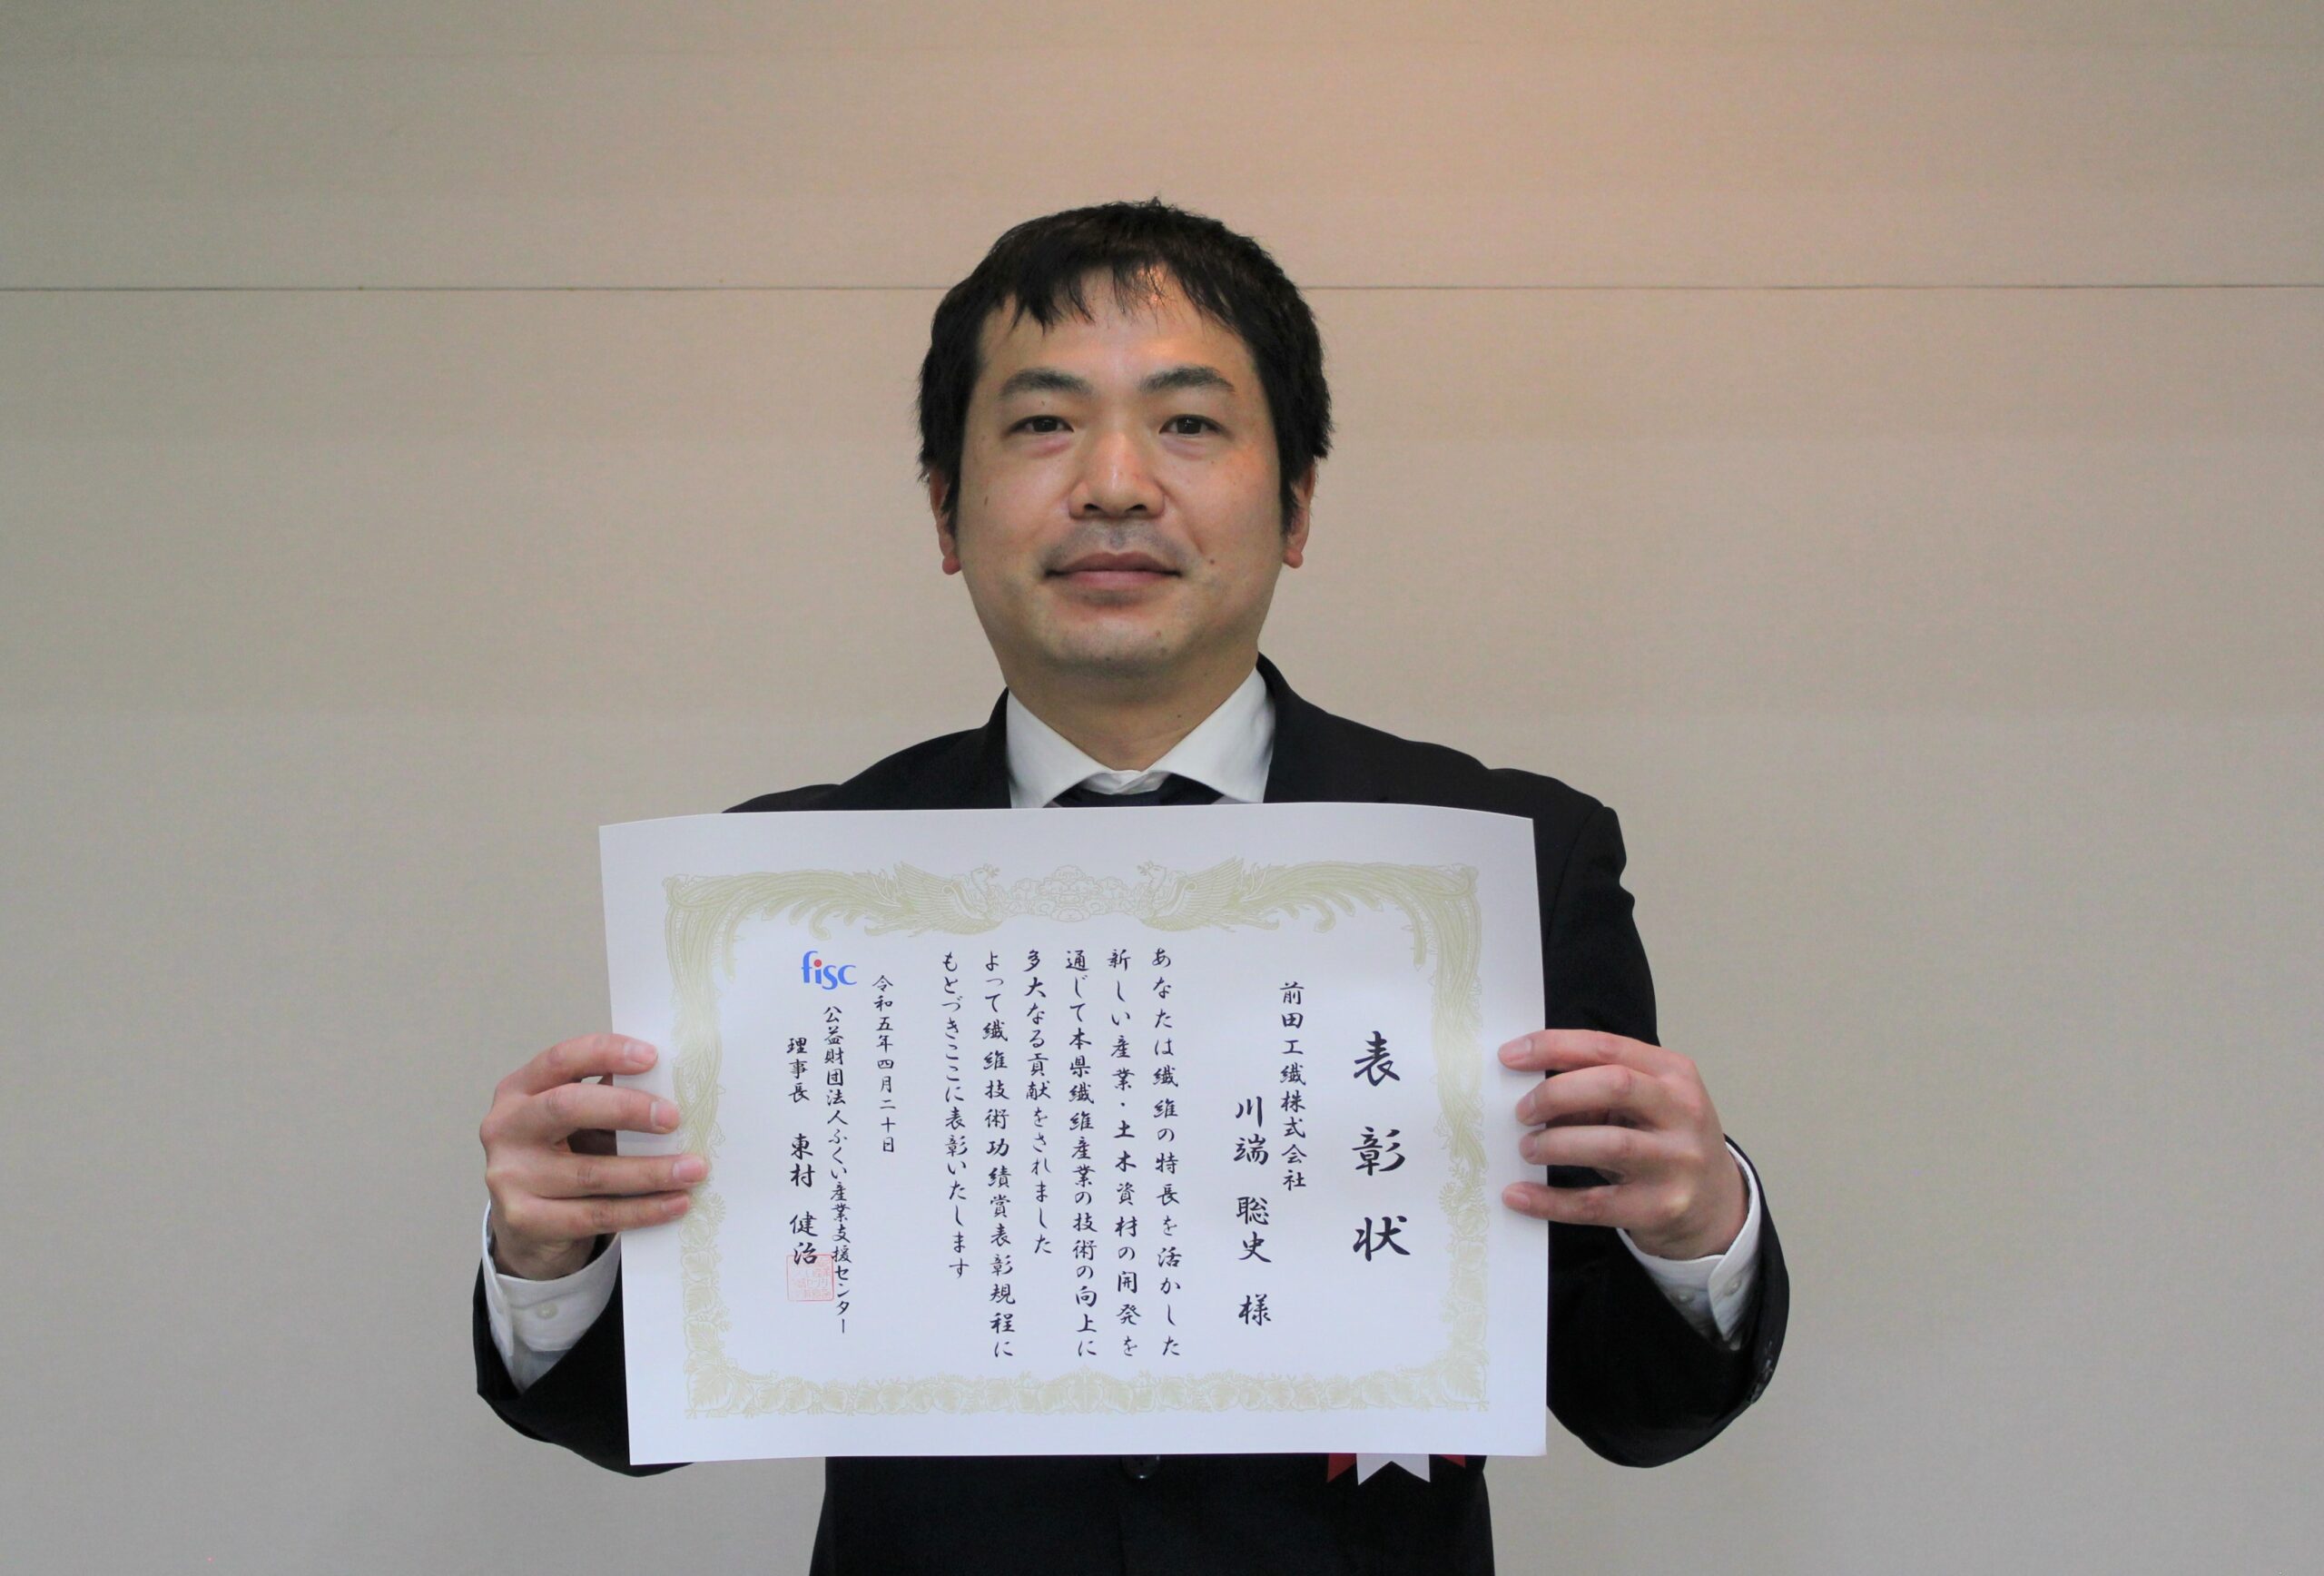 表彰状
前田工繊株式会社
川端 聡史 様
あなたは繊維の特長を活かした
新しい産業・土木資材の開発を
通じて本県繊維産業の技術の向上に
多大なる貢献をされました
よって繊維技術功績賞表彰規程に
もとづきここに表彰いたします
令和五年四月二十日
fisc
公益財団法人ふくい産業支援センター
理事長 東村 健治